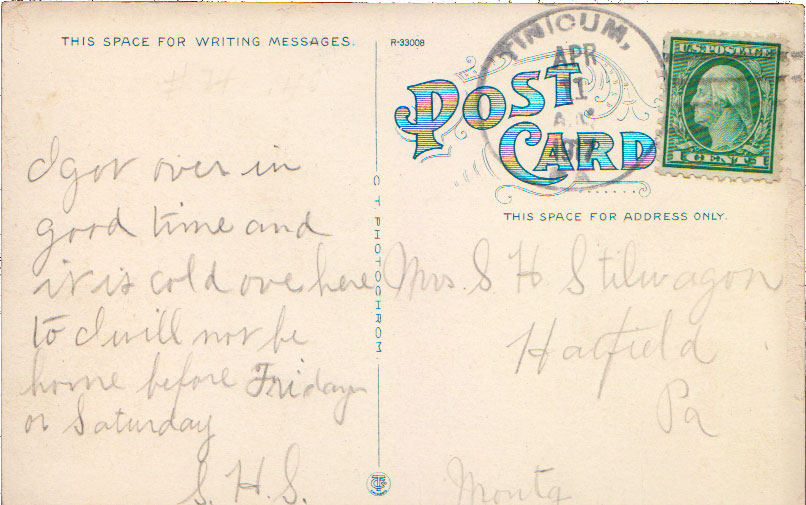 THIS SPACE FOR WRITING MESSAGES.
I got over in
good time and
it is cold over here
to I will not be
home before Friday
or Saturday
S. H. S.
C T PHOTOCHROM
R-33008
POST
CARD
TINICUM,
APR
A.M.
PA
U.S. POSTAGE
1 CENT 1
THIS SPACE FOR ADDRESS ONLY.
Mrs. S H Stilwagon
Hatfield
Pa
Montg